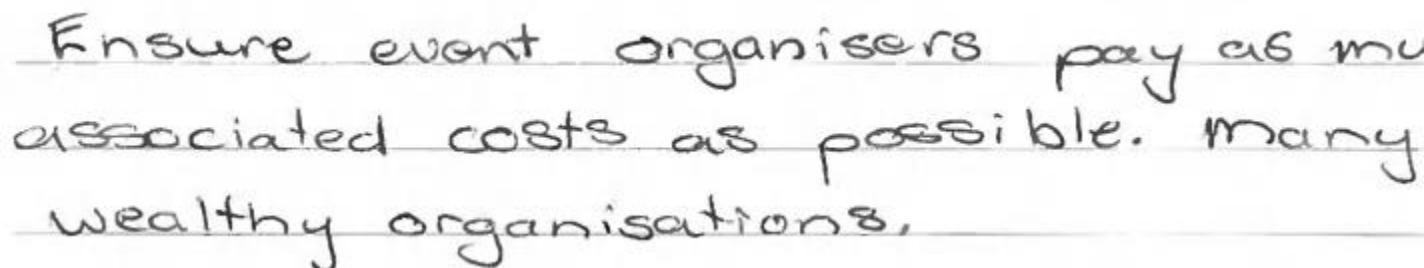 Ensure event organisers pay as mu
associated costs as possible. Many
wealthy organisations.